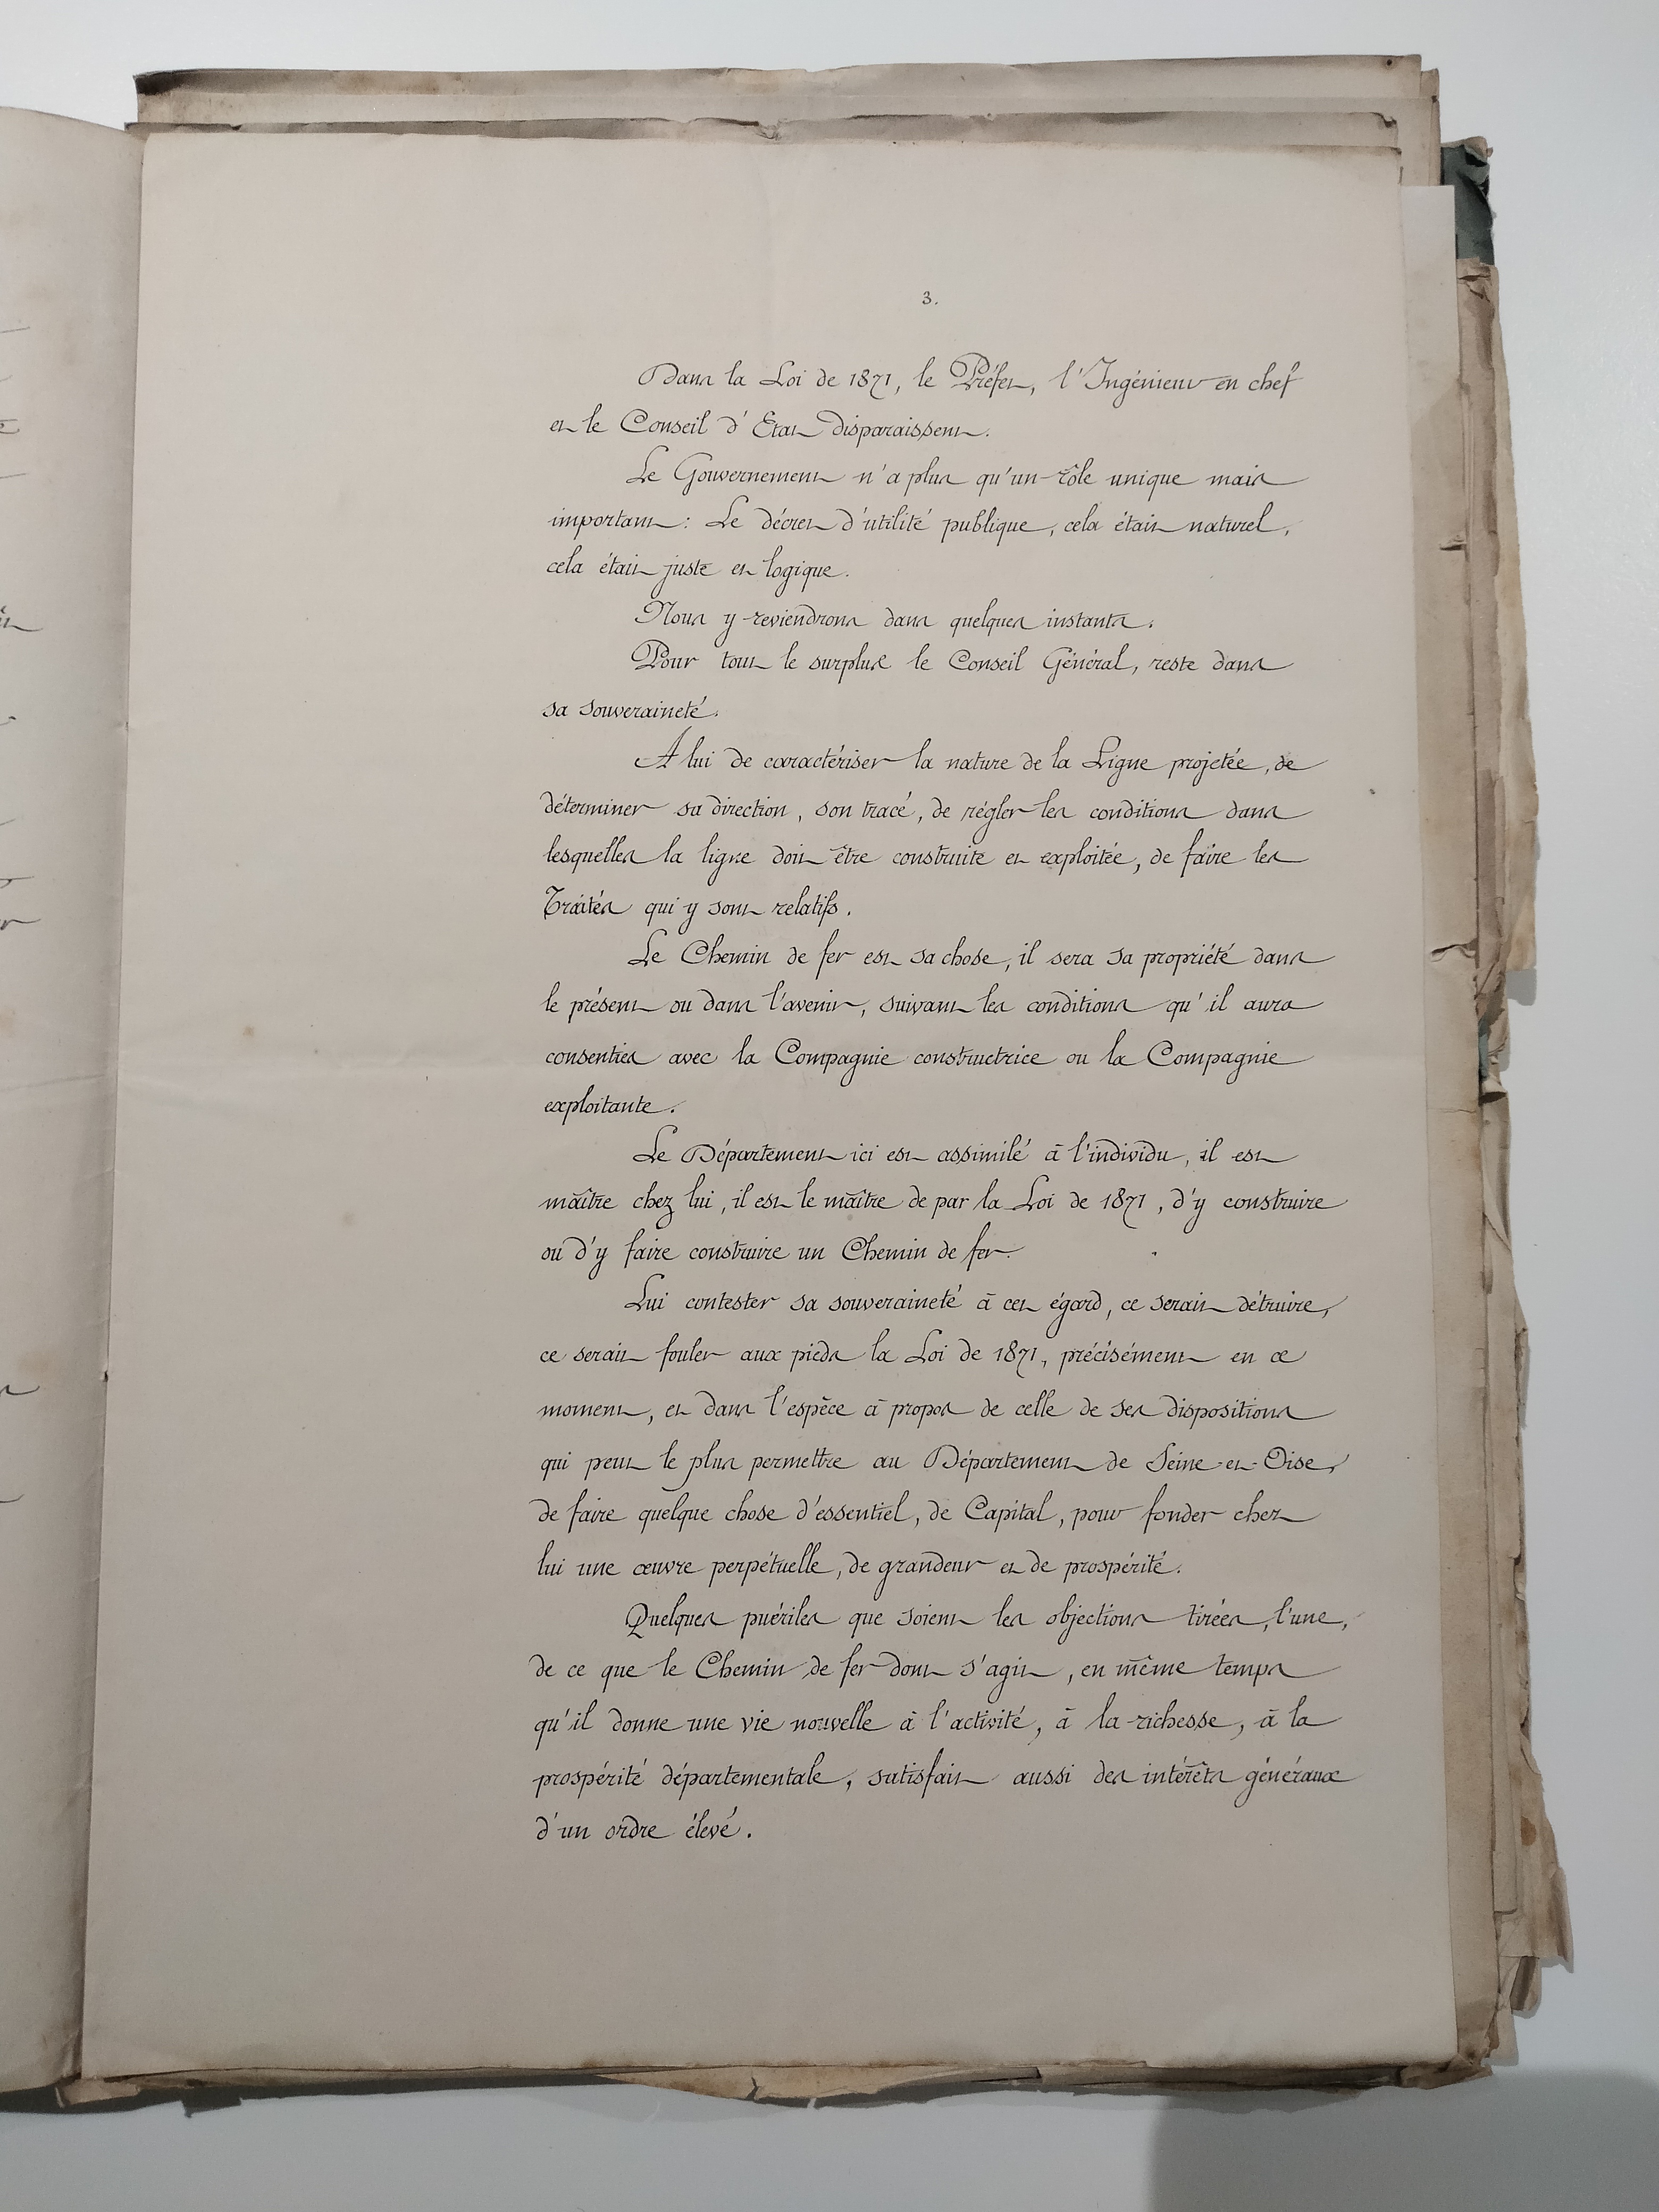 3.
Dans la Loi de 1871, le Préfet, l'Ingénieur en chef
et le Conseil d'Etat disparaissent.
Le Gouvernement n'a plus qu'un rôle unique mais
important : Le décret d'utilité publique, cela était naturel,
cela était juste et logique.
Nous y reviendrons dans quelques instants.
Pour tout le surplus le Conseil Général, reste dans
sa souveraineté.
A lui de caractériser la nature de la Ligne projetée, de
déterminer sa direction, son tracé, de régler les conditions dans
lesquelles la ligne doit être construite et exploitée, de faire les
Traités qui y sont relatifs.
Le Chemin de fer est sa chose, il sera sa propriété dans
le présent ou dans l'avenir, suivant les conditions qu'il aura
consenties avec la Compagnie constructrice ou la Compagnie
exploitante.
Le Département ici est assimilé à l'individu, il est
maître chez lui, il est le maître de par la Loi de 1871, d'y construire
ou d'y faire construire un Chemin de fer.
Lui contester sa souveraineté à cet égard, ce serait détruire,
ce serait fouler aux pieds la Loi de 1871, précisément en ce
moment, et dans l'espèce à propos de celle de ses dispositions
qui peut le plus permettre au Département de Seine-et-Oise,
de faire quelque chose d'essentiel, de Capital, pour fonder chez
lui une œuvre perpétuelle, de grandeur et de prospérité.
Quelques puériles que soient les objections tirées, l'une,
de ce que le Chemin de fer dont s'agit, en même temps
qu'il donne une vie nouvelle à l'activité, à la richesse, à la
prospérité départementale, satisfait aussi des intérêts généraux
d'un ordre élevé.